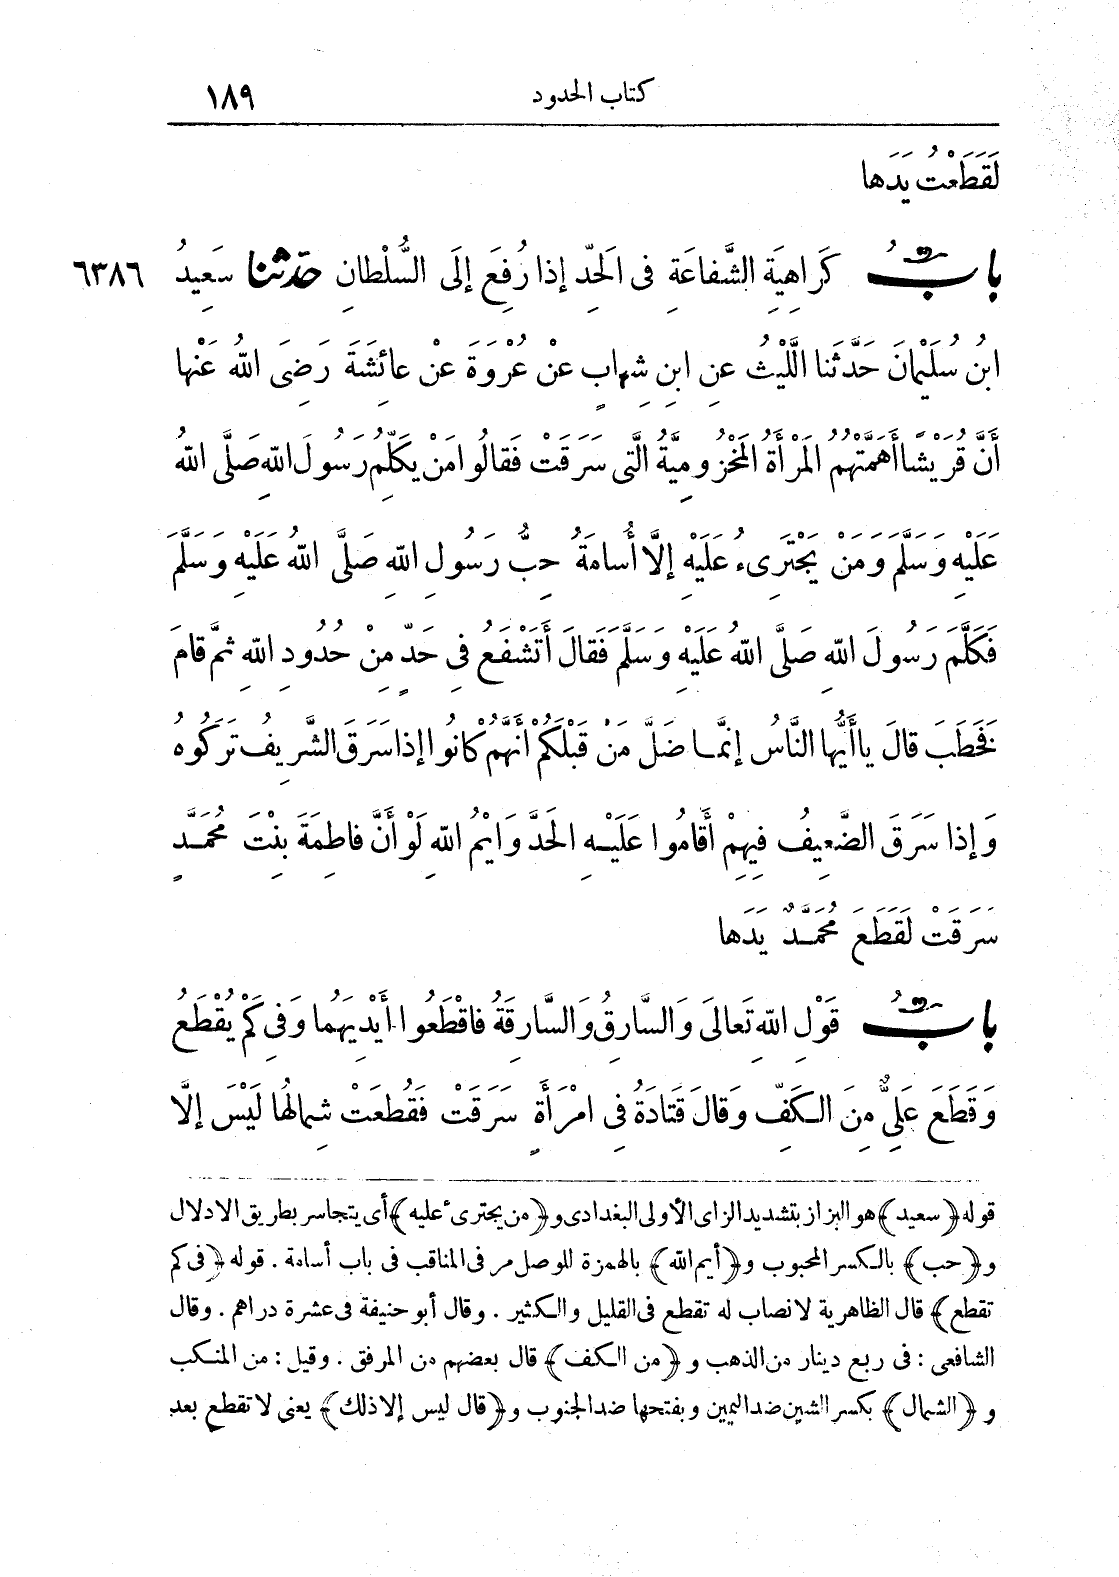 كتاب الحدود ١٨٩
لَقَطَعْتُ يَدَهَا
بابُ كَرَاهِيَةِ الشَّفاعَةِ فى الحَدِّ إذا رُفِعَ إلَى السُّلْطانِ حدّثنا سَعِيدُ ٦٣٨٦
ابنُ سُلَيْمانَ حَدَّثَنا اللَّيْثُ عنِ ابنِ شِهابٍ عنْ عُرْوَةَ عنْ عائِشَةَ رَضِىَ اللهُ عَنْها
أنَّ قُرَيْشًا أهَمَّتْهُمُ المَرْأةُ المَخْزُومِيَّةُ الَّتى سَرَقَتْ فَقالُوا مَنْ يُكَلِّمُ رَسُولَ اللهِ صَلَّى اللهُ
عَلَيْهِ وَسَلَّمَ وَمَنْ يَجْتَرِىءُ عَلَيْهِ إلَّا أُسامَةُ حِبُّ رَسُولِ اللهِ صَلَّى اللهُ عَلَيْهِ وَسَلَّمَ
فَكَلَّمَ رَسُولَ اللهِ صَلَّى اللهُ عَلَيْهِ وَسَلَّمَ فَقالَ أتَشْفَعُ فِى حَدٍّ مِنْ حُدُودِ اللهِ ثُمَّ قامَ
فَخَطَبَ قالَ ياأيُّها النَّاسُ إنَّمَا ضَلَّ مَنْ قَبْلَكُمْ أنَّهُمْ كانُوا إذا سَرَقَ الشَّرِيفُ تَرَكُوهُ
وَإذا سَرَقَ الضَّعِيفُ فِيهِمْ أقامُوا عَلَيْهِ الحَدَّ وَايْمُ اللهِ لَوْ أنَّ فاطِمَةَ بِنْتَ مُحَمَّدٍ
سَرَقَتْ لَقَطَعَ مُحَمَّدٌ يَدَها
بابُ قَوْلِ اللهِ تَعالَى وَالسَّارِقُ وَالسَّارِقَةُ فاقْطَعُوا أيْدِيَهُما وَفى كَمْ يُقْطَعُ
وَقَطَعَ عَلِىٌّ مِنَ الكَفِّ وَقالَ قَتادَةُ فى امْرَأةٍ سَرَقَتْ فَقُطِعَتْ شِمالُها لَيْسَ إلَّا
قوله ﴿سعيد﴾ هو البزاز بتشديد الزاى الأولى البغدادى و﴿من يجترىء عليه﴾ أى يتجاسر بطريق الادلال
و﴿حب﴾ بالكسر المحبوب و﴿أيم الله﴾ بالهمزة للوصل مر فى المناقب فى باب أسامة . قوله ﴿فى كم
تقطع﴾ قال الظاهرية لانصاب له تقطع فى القليل والكثير . وقال أبو حنيفة فى عشرة دراهم . وقال
الشافعى : فى ربع دينار من الذهب و ﴿من الكف﴾ قال بعضهم من المرفق . وقيل : من المنكب
و ﴿الشمال﴾ بكسر الشين ضد اليمين وبفتحها ضد الجنوب و﴿قال ليس إلا ذلك﴾ يعنى لا تقطع بعد